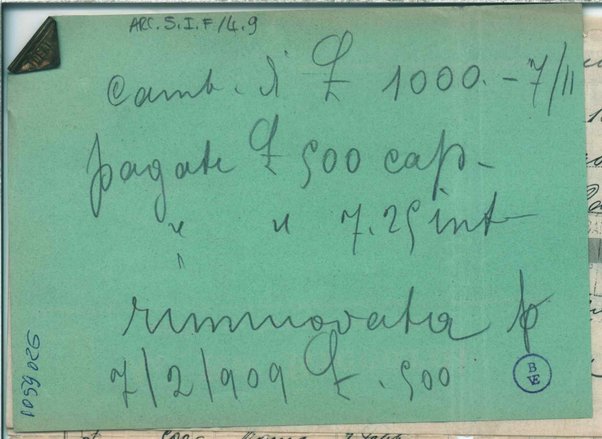 ARC.S.I.F/4.9
Camb. di £ 1000.- 7/11
pagate £ 500 cap-
" " 7.25 int
rinnovata p
7/2/909 £. 500
BVE
1059026